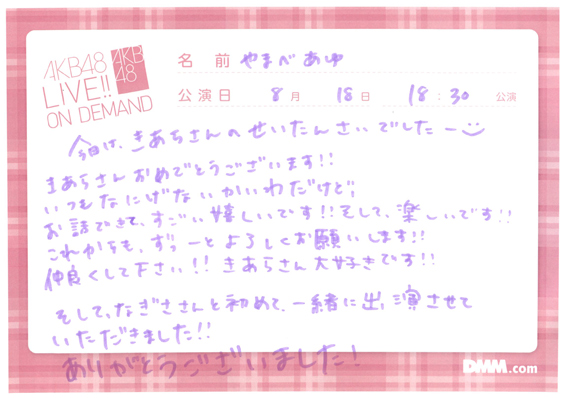 AKB48
LIVE!!
ON DEMAND
AKB
48
名 前 やまべあゆ
公演日 8月 18日 18:30 公演
今日は、きあらさんのせいたんさいでしたー
きあらさんおめでとうございます!!
いつもなにげないかいわだけど、
お話できて、すごい嬉しいです!!そして、楽しいです!!
これからも、ずっーとよろしくお願いします!!
仲良くして下さい!! きあらさん大好きです!!
そして、なぎささんと初めて、一緒に出演させて
いただきました!!
ありがとうございました!
DMM.com